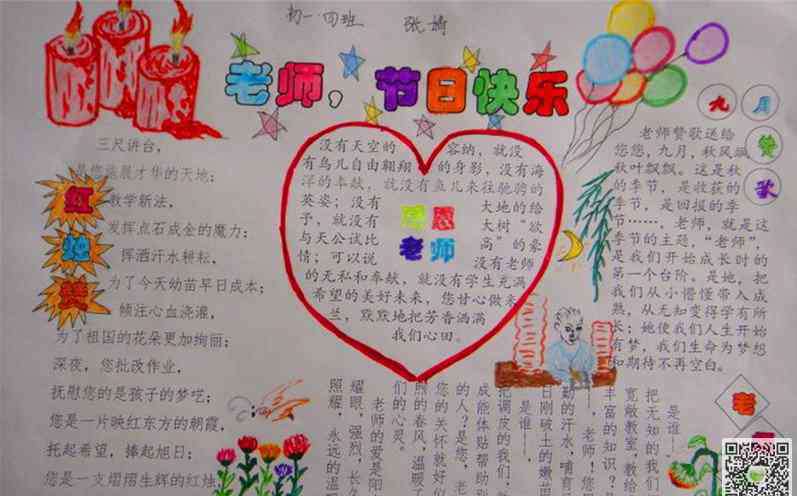 初一四班 张婧
老师，节日快乐
九月赞歌
红烛赞
三尺讲台，
是您施展才华的天地；
教学新法，
发挥点石成金的魔力；
挥洒汗水耕耘，
为了今天幼苗早日成本；
倾注心血浇灌，
为了祖国的花朵更加绚丽；
深夜，您批改作业，
抚慰您的是孩子的梦呓；
您是一片映红东方的朝霞，
托起希望，捧起旭日；
您是一支熠熠生辉的红烛
没有天空的容纳，就没
有鸟儿自由翱翔的身影，没有海
洋的奉献，就没有鱼儿来往驰骋的
英姿；没有大地的给
予，就没有大树“欲
与天公试比高”的豪
情；可以说没有老师
的无私和奉献，就没有学生充满
希望的美好未来，您甘心做来
兰，默默地把芳香洒满
我们心田。
感恩
老师
老师赞歌送给
您您，九月，秋风飒
秋叶飘飘。这是秋
的季节，是收获的
季节，是回报的季
节……，老师，就是这
季节的主题，“老师”，
是我们开始成长时的
第一个台阶。是她，把
我们从小懵懂带入成
熟，从无知变得学有所
长；她使我们人生开始
有梦，我们生命为梦想
和期待不再空白。
是谁——
把无知的我们
宽敞教室，教给
丰富的知识？
，老师！您
勤的汗水，哺育
日刚破土的嫩苗
是谁——
把调皮的我们
成能体贴帮助别
的人？是您，老
您的关怀就好似
煦的春风，温暖了
们的心灵。
老师的爱是阳
耀眼，强烈，长久
照耀，永远的温
老